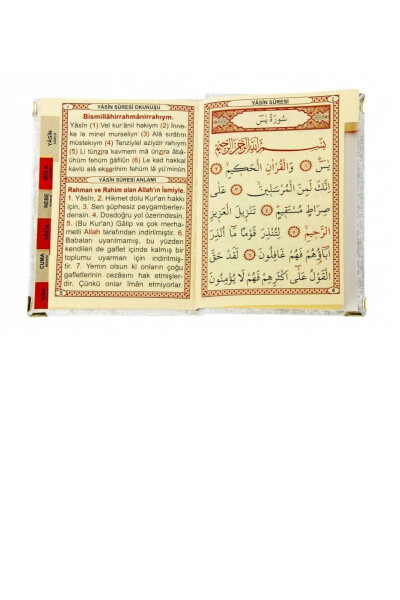 YÂSÎN SÛRESİ OKUNUŞU
Bismillâhirrahmânirrahıym.
Yâsîn (1) Vel kur'ânil hakıym (2) İnne-
ke le minel murseliyn (3) Alâ sırâtım
müstekıym (4) Tenziylel azizir rahıym
(5) Li tünzira kavmem mâ ünzira âbâ-
ühüm fehüm gâfilûn (6) Le kad hakkal
kavlü alâ ekserihim fehüm lâ yü'minûn
YÂSİN SÛRESİ ANLAMI
Rahman ve Rahim olan Allah'ın İsmiyle.
1. Yâsîn, 2. Hikmet dolu Kur'an hakkı
için, 3. Sen şüphesiz peygamberler-
densin. 4. Dosdoğru yol üzerindesin.
5. (Bu Kur'an) Gâlip ve çok merha-
metli Allah tarafından indirilmiştir. 6.
Babaları uyarılmamış, bu yüzden
kendileri de gaflet içinde kalmış bir
toplumu uyarman için indirilmiş-
tir. 7. Yemin olsun ki onların çoğu
gafletlerinin cezasını hak etmişler-
dir. Çünkü onlar îmân etmiyorlar.
YÂSİN
MÜLK
NEBE
CUMA
YÂSİN SÛRESİ
سُورَةُ يٰسٓ
بِسْمِ اللّٰهِ الرَّحْمٰنِ الرَّحِيمِ
يٰسٓ ۝١ وَالْقُرْاٰنِ الْحَكِيمِ ۝٢
اِنَّكَ لَمِنَ الْمُرْسَلِينَ ۝٣ عَلٰى
صِرَاطٍ مُسْتَقِيمٍ ۝٤ تَنْزِيلَ الْعَزِيزِ
الرَّحِيمِ ۝٥ لِتُنْذِرَ قَوْمًا مَٓا اُنْذِرَ
اٰبَٓاؤُهُمْ فَهُمْ غَافِلُونَ ۝٦ لَقَدْ حَقَّ
الْقَوْلُ عَلٰٓى اَكْثَرِهِمْ فَهُمْ لَا يُؤْمِنُونَ